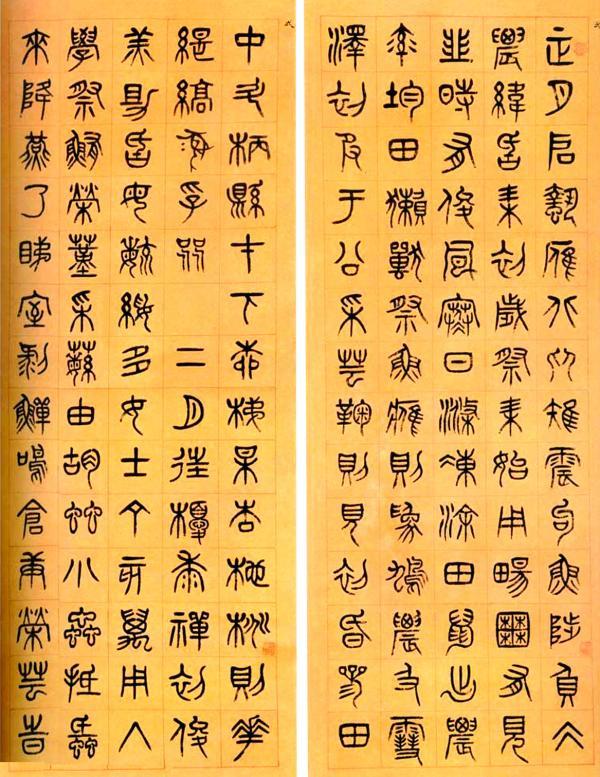 正月启蟄雁北鄉雉震句魚陟負冰
農緯厥耒初歲祭耒始用暢囿有見
韭時有俊風寒日滌凍涂田鼠出農
率均田獺獸祭魚鷹則為鳩農及雪
澤初服于公采芸鞠則見初昏參田
中斗柄縣在下柳梯梅杏杝桃則華
緹縞孚粥 二月往耰黍禪初俊
羔助厥母粥綏多女士丁亥萬用入
學祭鮪榮菫采蘩由胡䖵小蟲抵蚳
來降燕乃睇室剝鱓鳴倉庚榮芸時